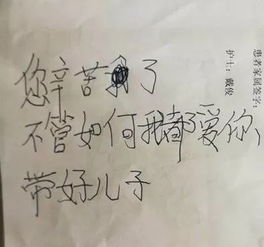 您辛苦了
不管如何我都爱你,
带好儿子
患者家属签字:
护士: 戴俊